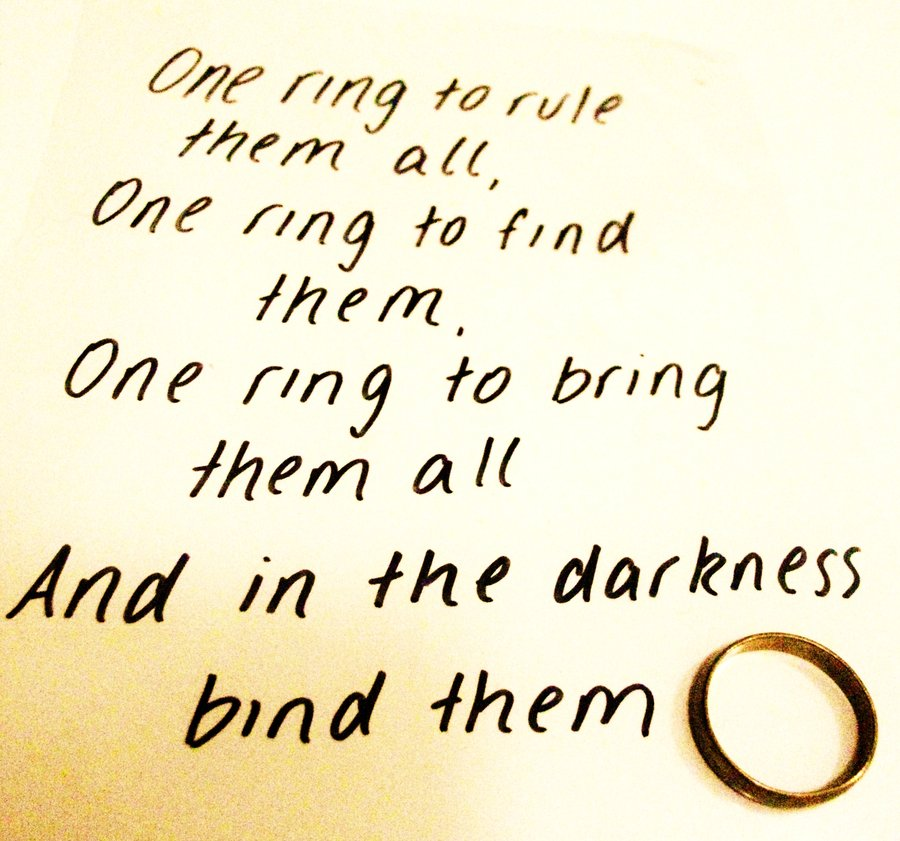 One ring to rule
them all,
One ring to find
them,
One ring to bring
them all
And in the darkness
bind them